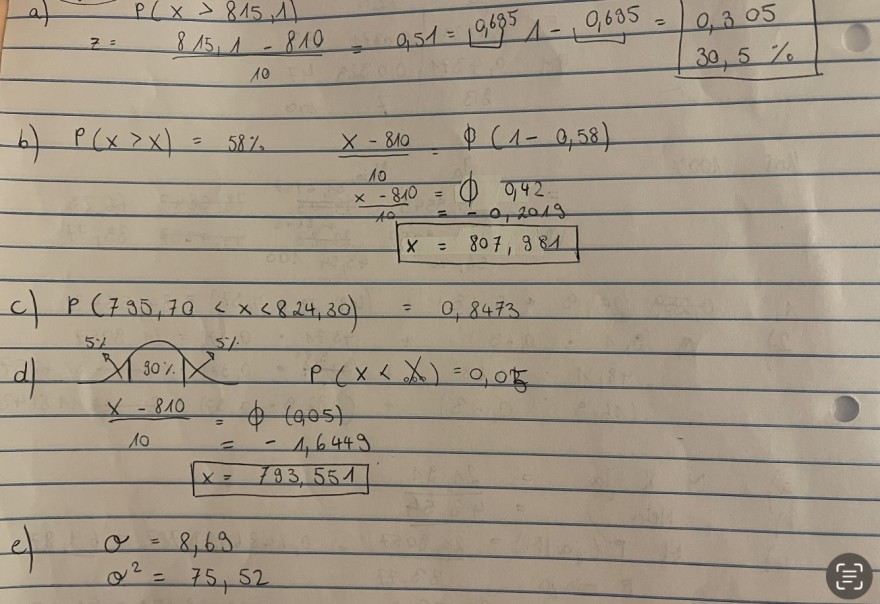 a) P(x > 815,1)
z = 815,1 - 810 / 10 = 0,51 = 0,695 1 - 0,695 = 0,305
30,5 %
b) P(x > x) = 58% x - 810 / 10 = ϕ (1 - 0,58)
x - 810 / 10 = ϕ 0,42
= - 0,2019
x = 807,981
c) P(795,70 < x < 824,30) = 0,8473
5% 90% 5%
d) P(x < x) = 0,05
x - 810 / 10 = ϕ (0,05)
= - 1,6449
x = 793,551
e) σ = 8,69
σ² = 75,52